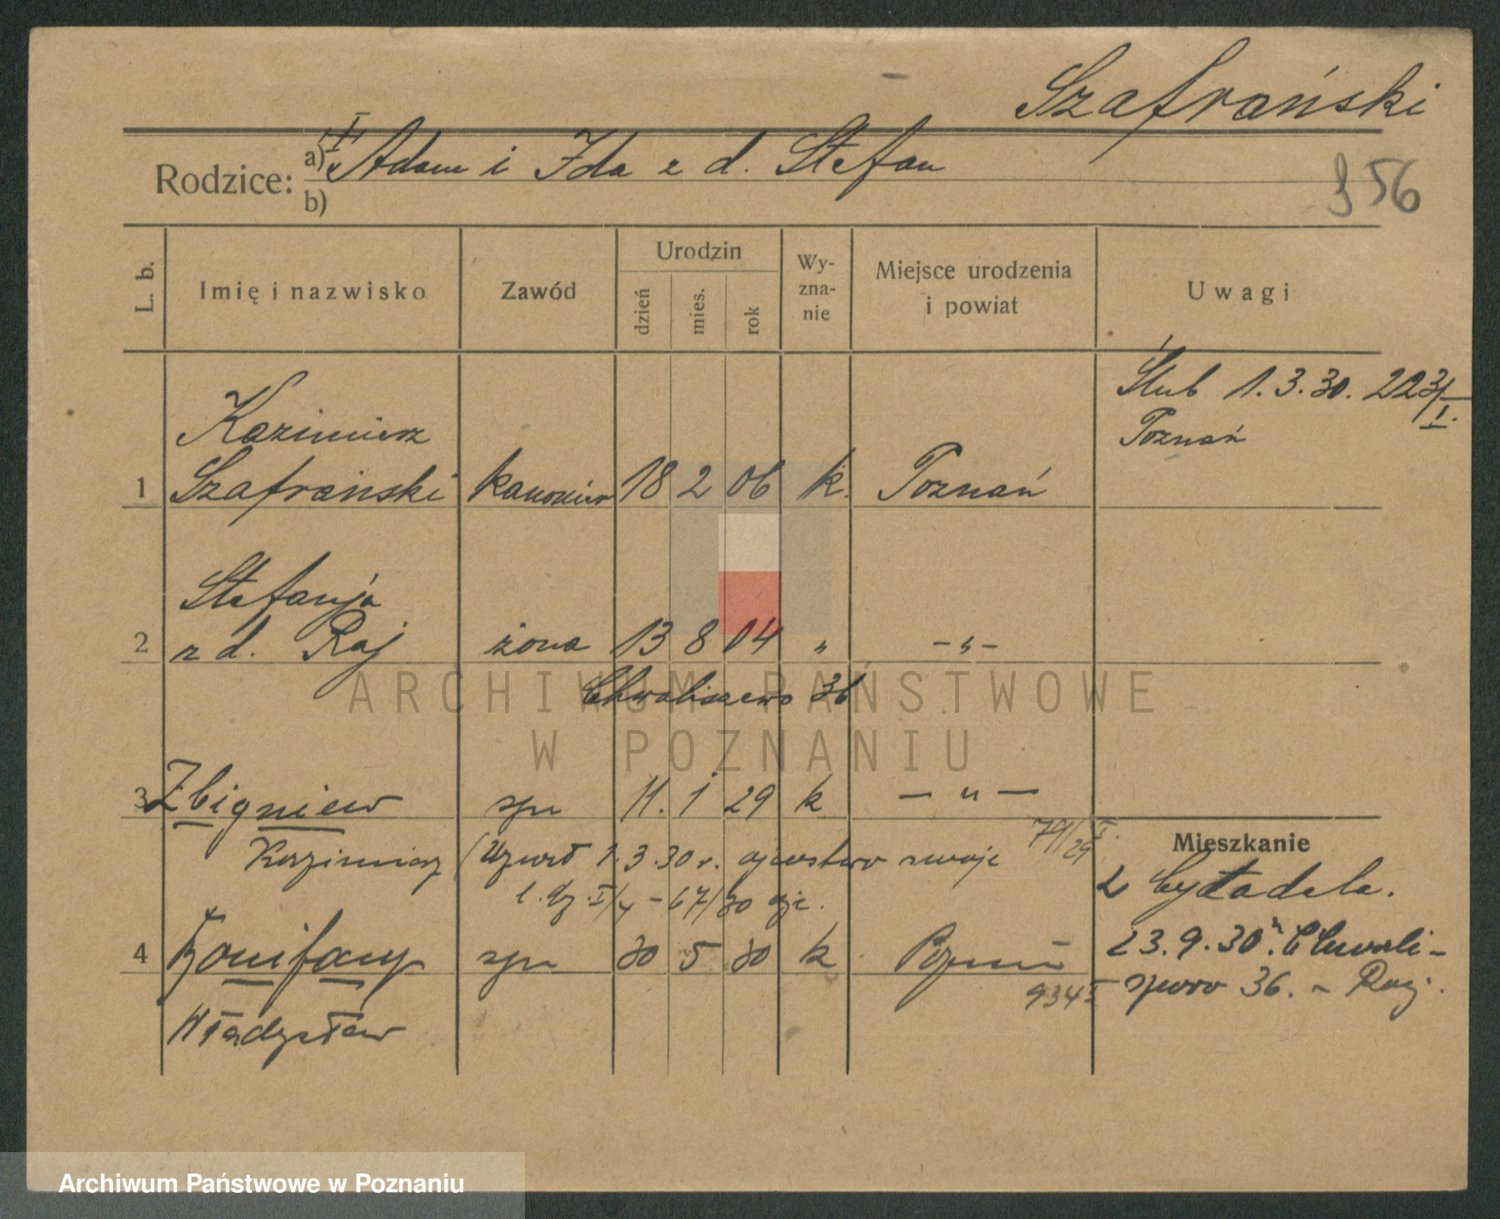 Szafrański
Rodzice: a) I Adam i Ida z d. Stefan
b)
856
L. b.
Imię i nazwisko
Zawód
Urodzin
dzień
mies.
rok
Wy-
zna-
nie
Miejsce urodzenia
i powiat
Uwagi
Ślub 1.3.30. 223/I.
Poznań
Kazimierz
1 Szafrański kanonier 18 2 06 k. Poznań
Stefanja
2 z d. Raj żona 13 8 04 " -"-
Chwaliszewo 36
3 Zbigniew syn 11. 1 29 k -"-
79/29 I.
Kazimierz (Uznał 1.3.30 r. ojcostwo swoje
Mieszkanie
Cytadela.
4 Bonifacy syn 30 5 30 k Poznań
934 I
23.9.30 r. Chwali-
szewo 36. - Raj.
Władysław
ARCHIWUM PAŃSTWOWE
W POZNANIU
Archiwum Państwowe w Poznaniu